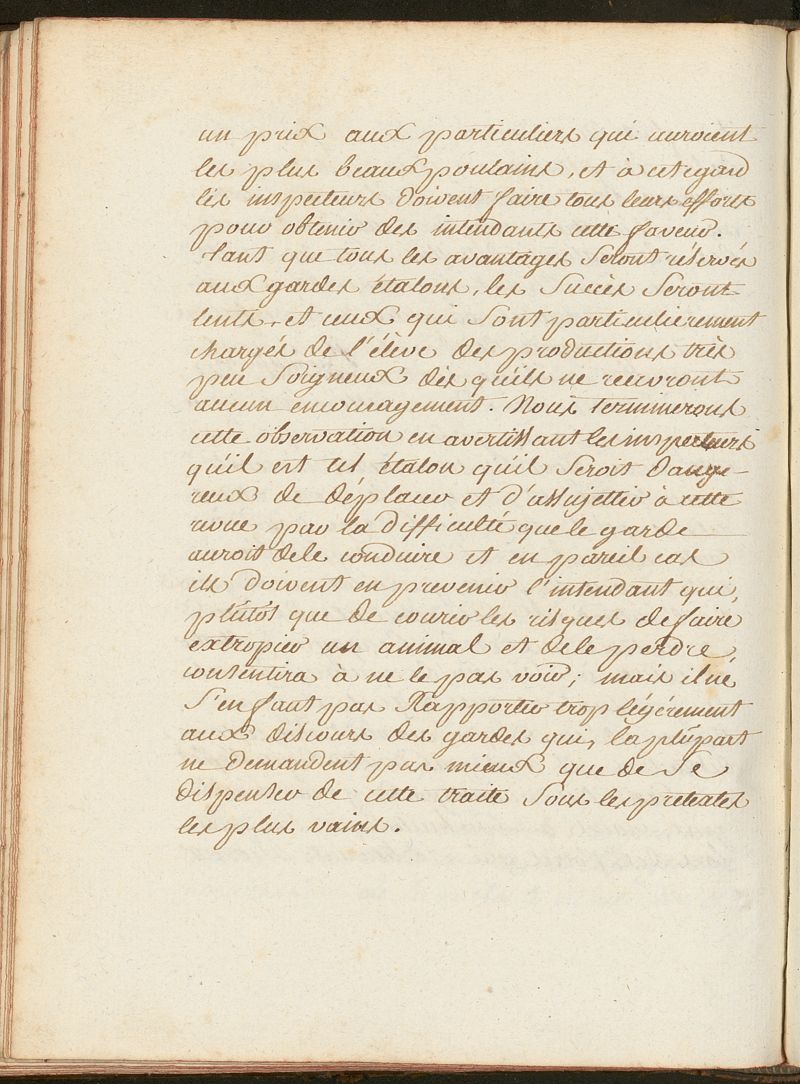 un prix aux particuliers qui auroient
les plus beaux poulains, et à cet egard
les inspecteurs doivent faire tous leurs efforts
pour obtenir des intendants cette faveur.
Tant que tous les avantages seront réservés
aux gardes étalons, les succès seront
lents, et ceux qui sont particulierement
chargés de l'élève des productions très
peu soigneux dès qu'ils ne recevront
aucun encouragement. Nous terminerons
cette observation en avertissant les inspecteurs
qu'il est tel étalon qu'il seroit dange-
reux de déplacer et d'assujettir à cette
revue par la difficulté que le garde
auroit de le conduire et en pareil cas
ils doivent en prevenir l'intendant qui,
plûtôt que de courir les risques de faire
extropier un animal et de le perdre,
consentira à ne le pas voir; mais il ne
s'en faut pas rapporter trop légérement
aux discours des gardes qui, la plûpart
ne demandent pas mieux que de se
dispenser de cette traite sous les pretextes
les plus vains.